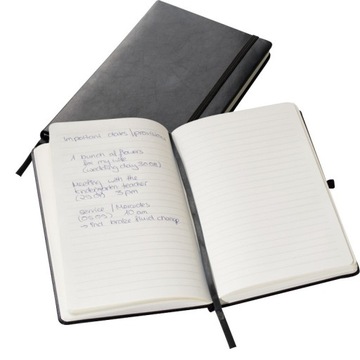 Important dates / provisions
1 bunch of flowers
for my wife
(wedding day 30.08)
Meeting with the
kindergarten teacher
(25.09) 3 pm
service / Mercedes
(05.05) 10 am
→ incl. brake fluid change